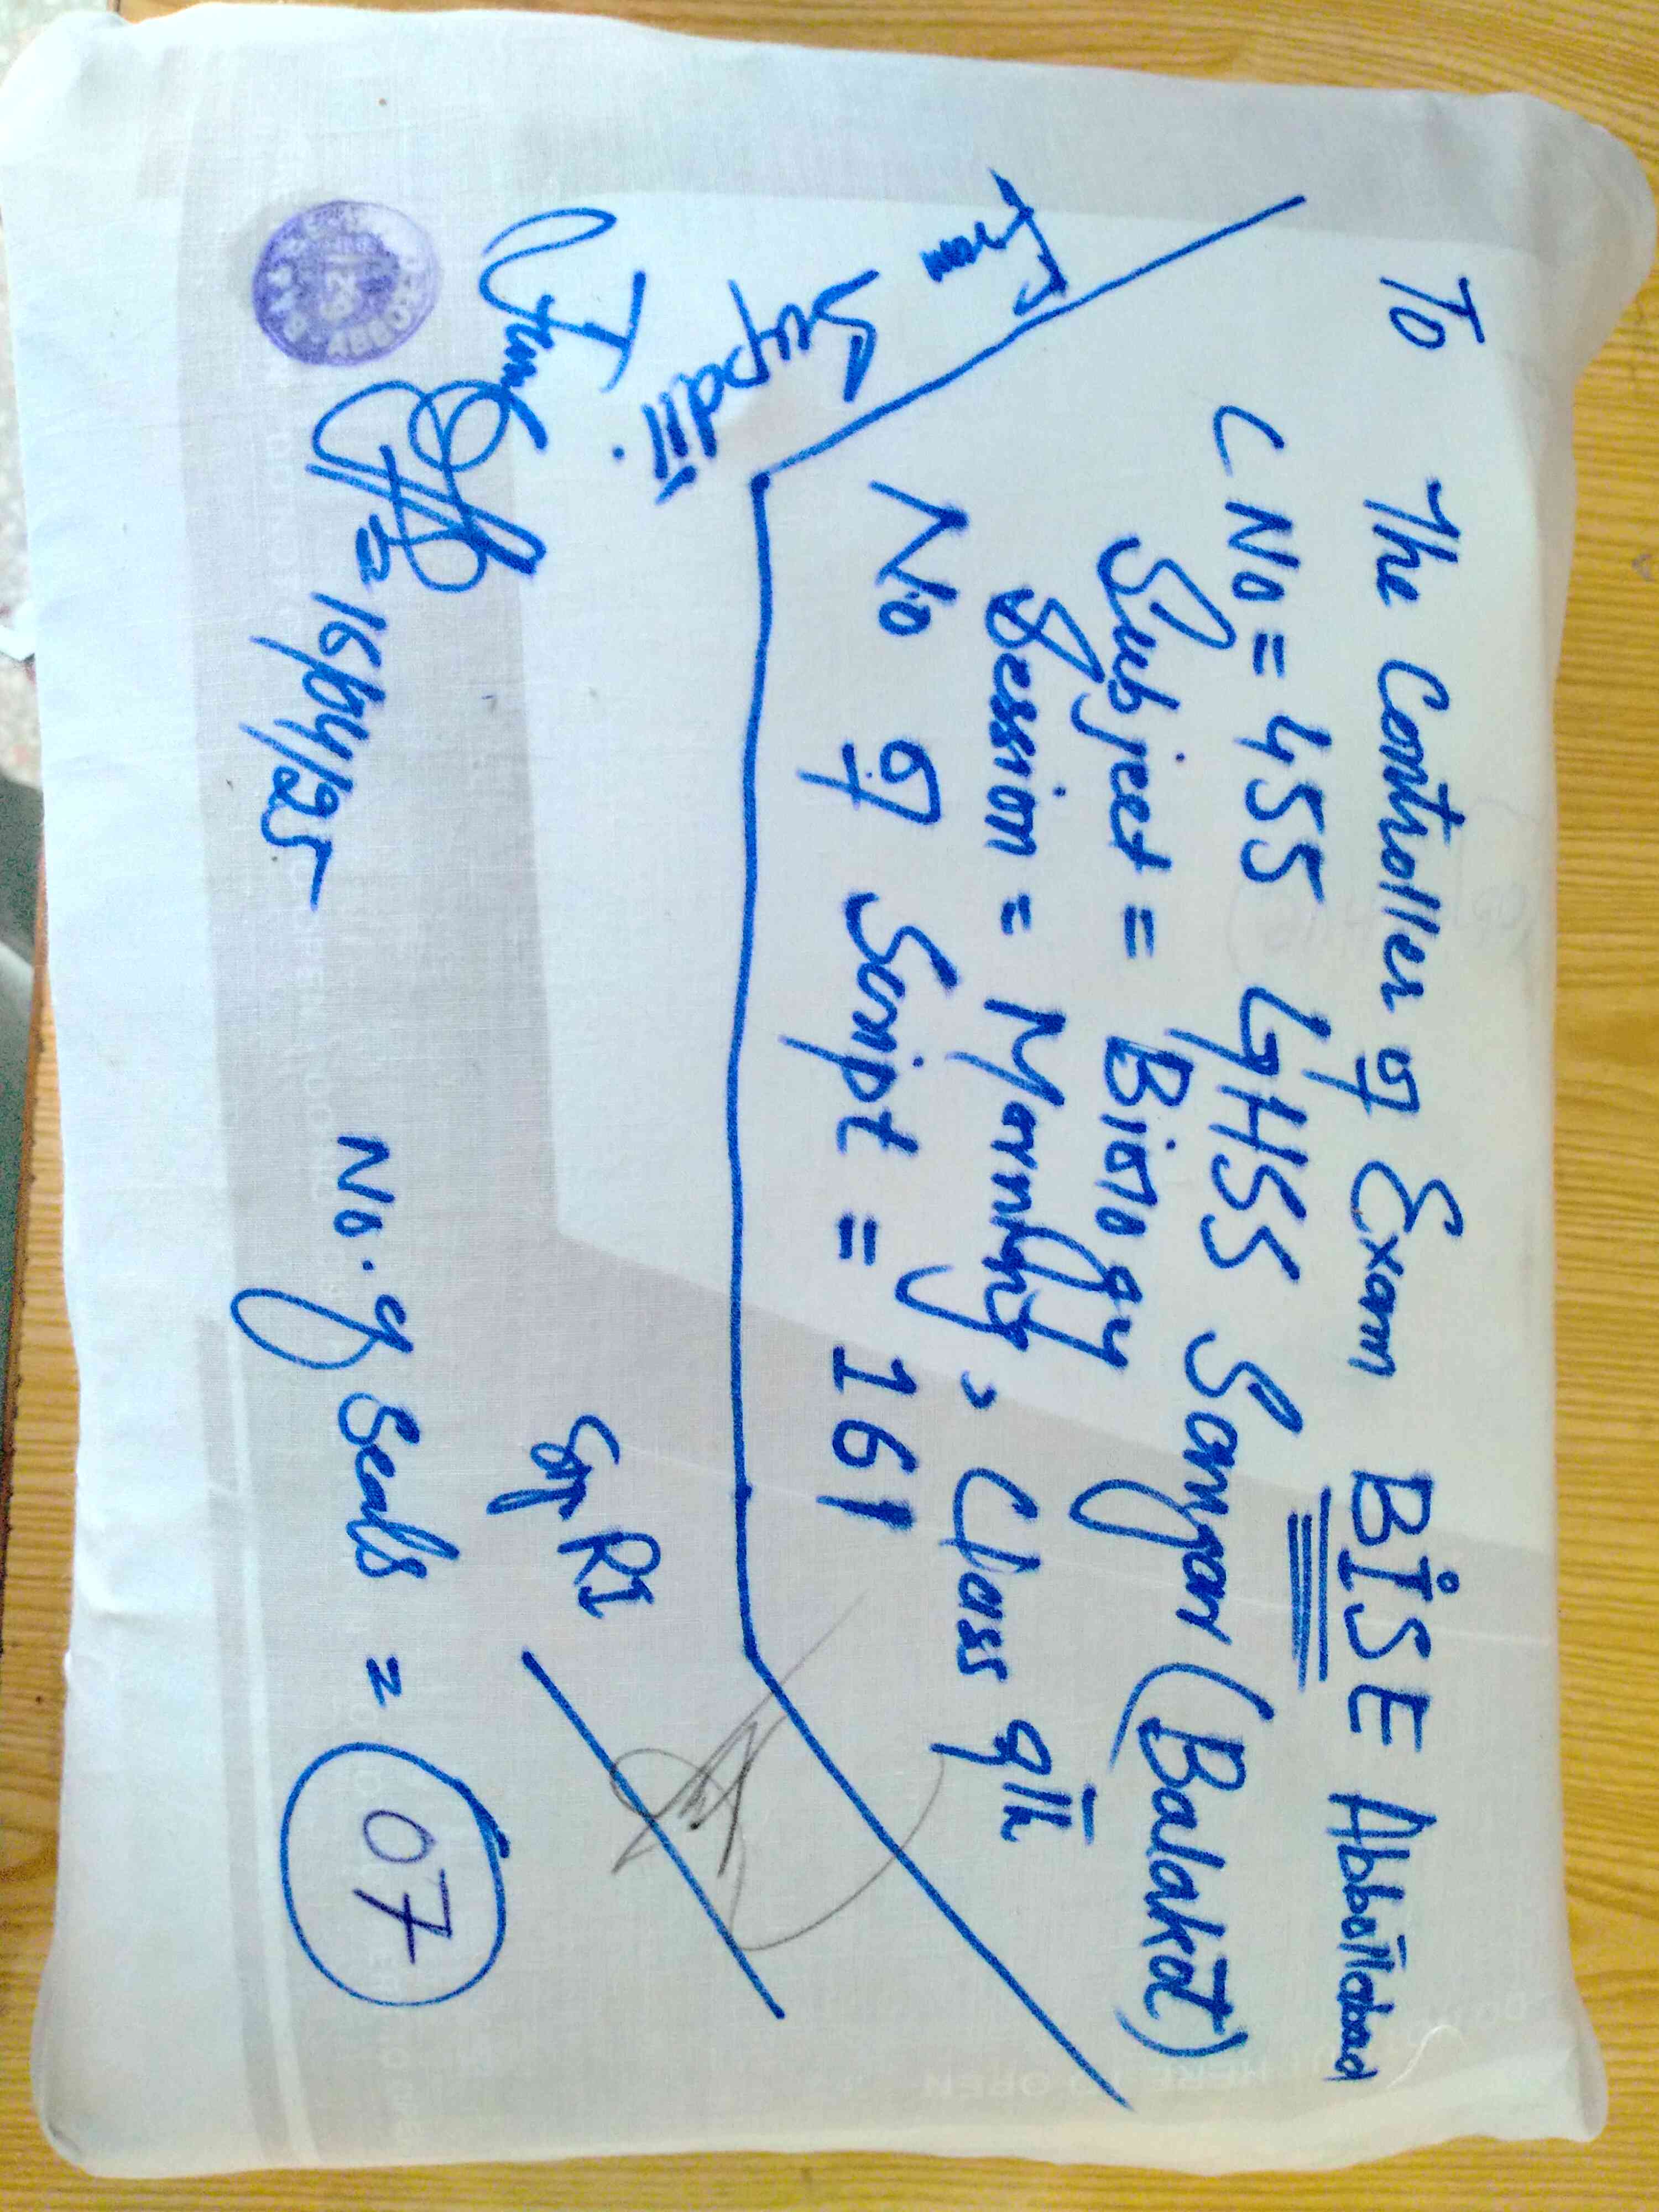 To The Controller of Exam BISE Abbottabad
C No = 455 GHSS Sangar (Balakot)
Subject = Biology
Session = Morning, Class 9th
No of Script = 161
From
Supdtt.
16/04/25
No. of Seals = 07